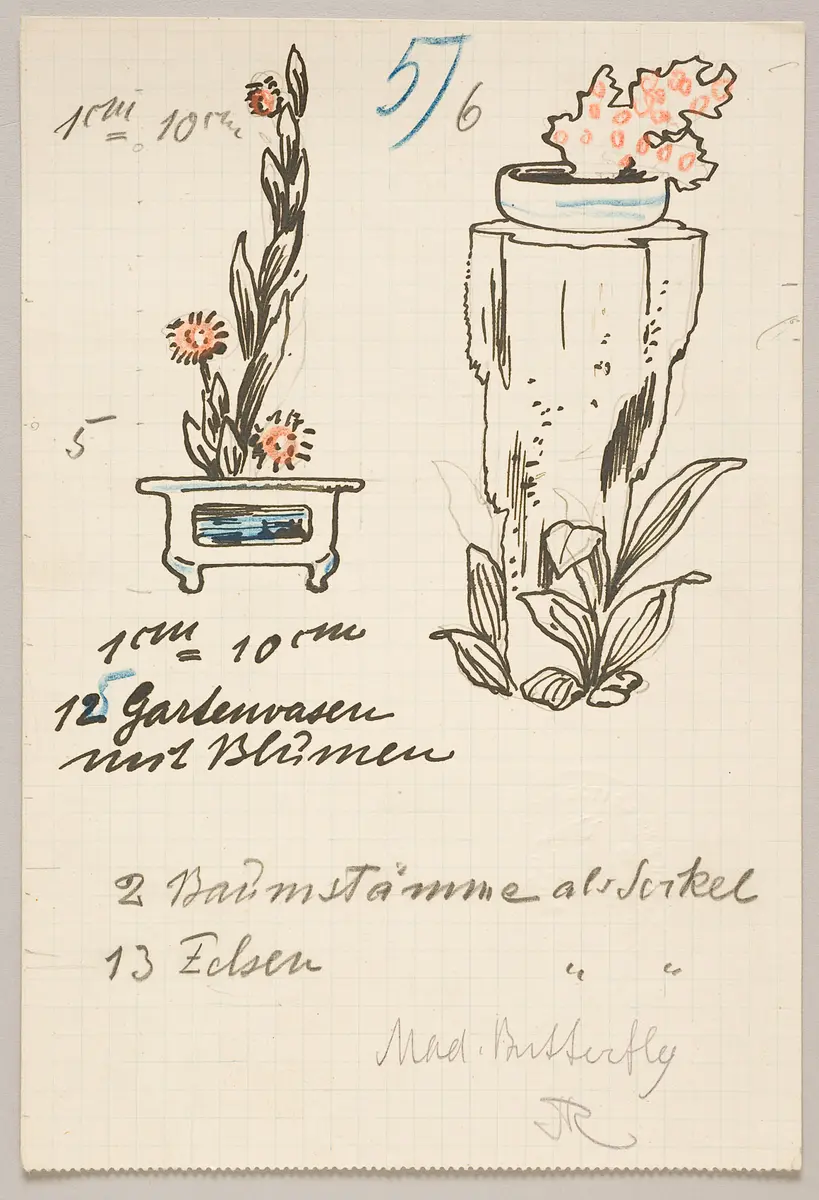 1cm = 10cm
5) 6
5
1cm = 10cm
125 Gartenvasen
mit Blumen
2 Baumstämme als Sockel
13 Felsen " "
Mad. Butterfly